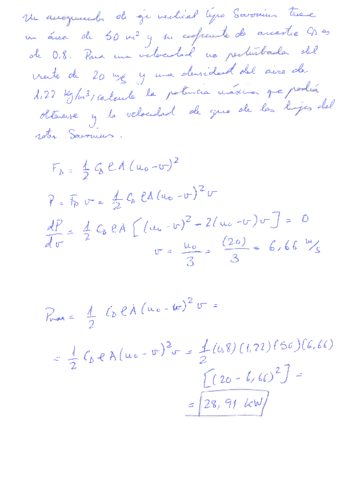 Un aerogenerador de eje vertical tipo Savonius tiene
un área de 50 m² y su coeficiente de arrastre C_D es
de 0.8. Para una velocidad no perturbada del
viento de 20 m/s y una densidad del aire de
1,22 kg/m³, calcule la potencia máxima que podría
obtenerse y la velocidad de giro de las hojas del
rotor Savonius.
F_D = 1/2 C_D ρ A (u₀ - v)²
P = F_D v = 1/2 C_D ρ A (u₀ - v)² v
dP/dv = 1/2 C_D ρ A [(u₀ - v)² - 2(u₀ - v)v] = 0
v = u₀/3 = (20)/3 = 6,66 m/s
P_max = 1/2 C_D ρ A (u₀ - v)² v =
= 1/2 C_D ρ A (u₀ - v)² v = 1/2 (0,8)(1,22)(50)(6,66)
[(20 - 6,66)²] =
= 28,91 kW